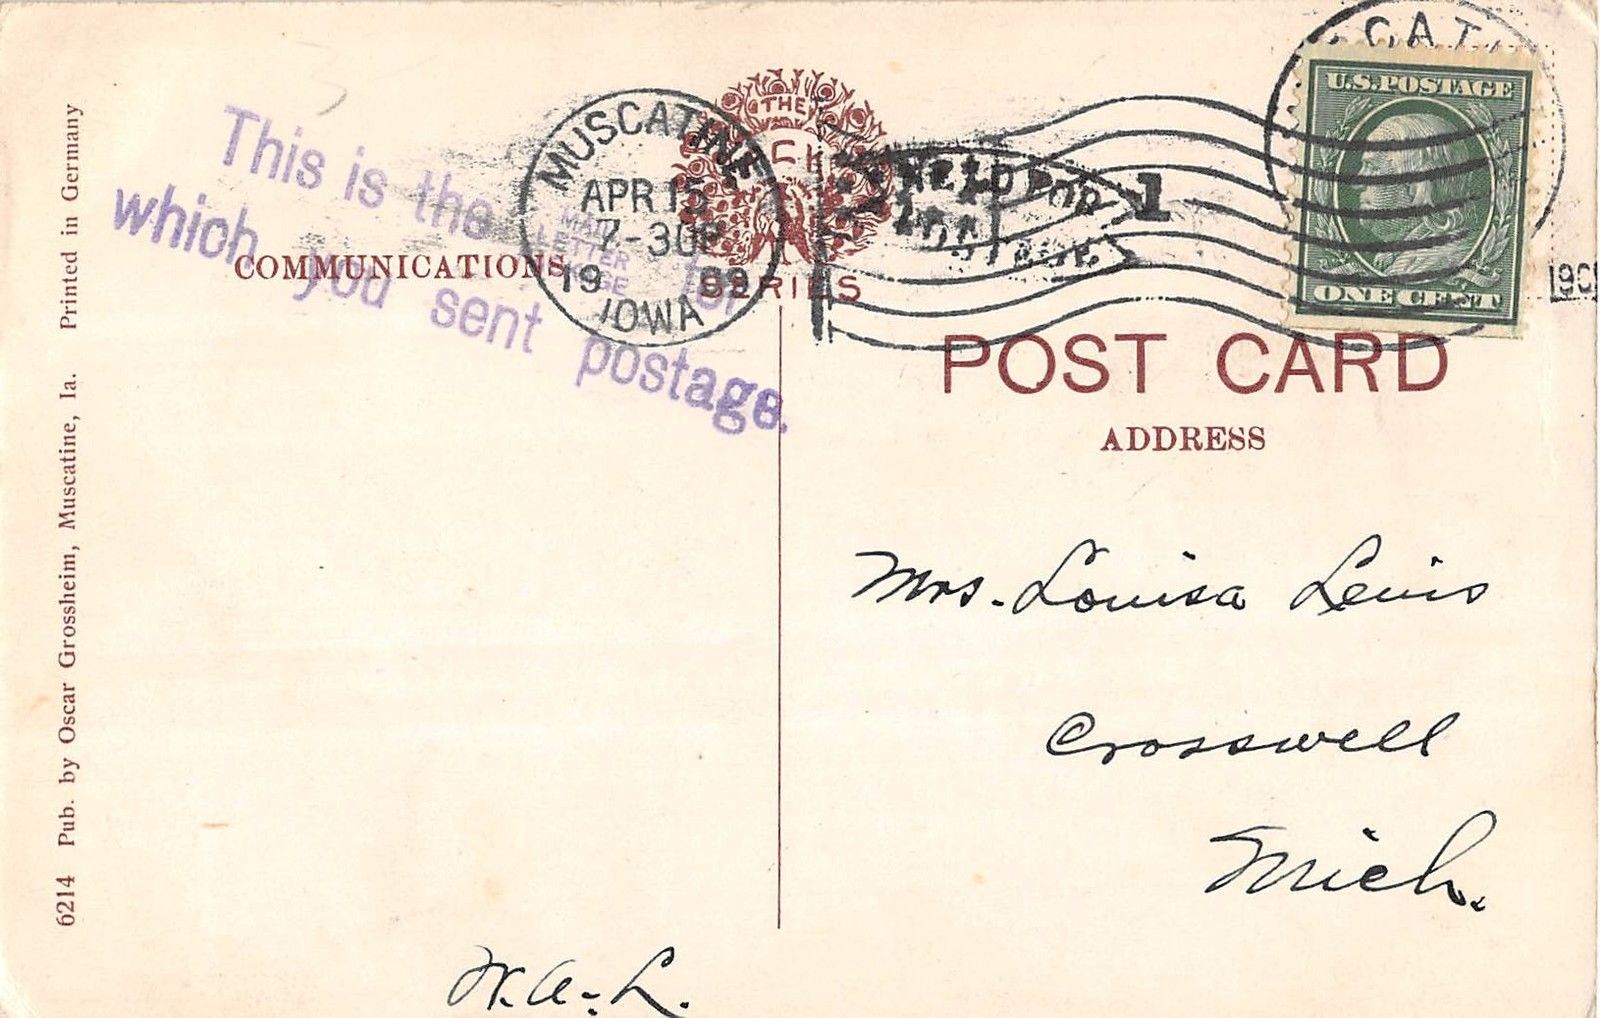 This is the
which you sent postage.
for
MAIL
LETTER
MUSCATINE
APR 15
7-30P
19 09
IOWA
THE
CK
SERIES
HELD FOR
POSTAGE
1
CAT
U.S.POSTAGE
ONE CENT
190
COMMUNICATIONS
POST CARD
ADDRESS
Mrs. Louisa Lewis
Crosswell
Mich.
W.A.L.
6214 Pub. by Oscar Grossheim, Muscatine, Ia. Printed in Germany